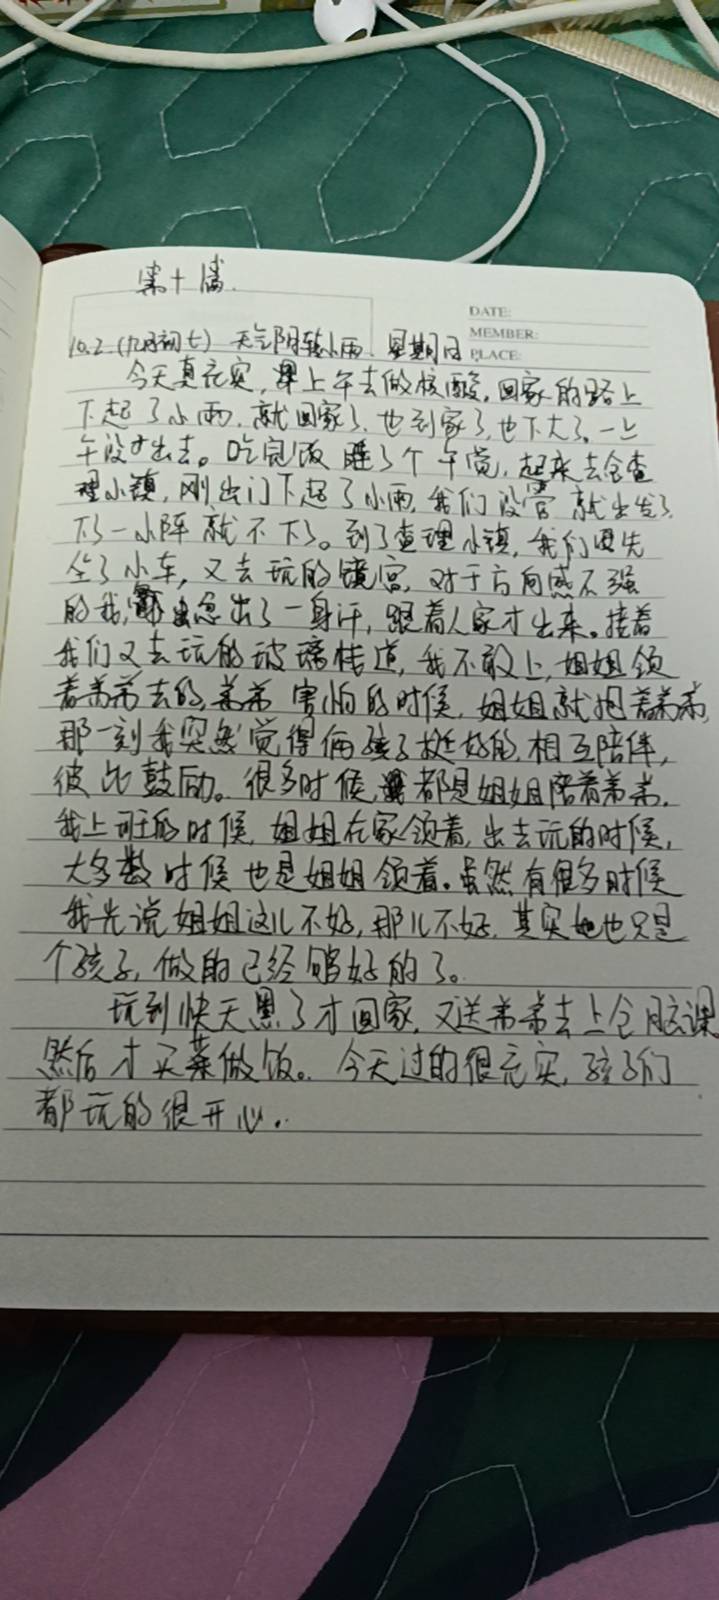 第十篇.
DATE:
MEMBER:
PLACE:
10.2.(九月初七) 天气阴转小雨. 星期日
今天真充实,上午去做核酸,回家的路上
下起了小雨,就回家了,也到家了,也下大了。一上
午没出去。吃完饭睡了个午觉,起来去查
理小镇,刚出门下起了小雨,我们没管就出发了,
下了一小阵就不下了。到了查理小镇,我们先
坐了小车,又去玩的镜宫,对于方向感不强
的我,急出了一身汗,跟着人家才出来。接着
我们又去玩的玻璃栈道,我不敢上,姐姐领
着弟弟去的,弟弟害怕的时候,姐姐就抱着弟弟,
那一刻我突然觉得俩孩子挺好的,相互陪伴,
彼此鼓励。很多时候,都是姐姐陪着弟弟,
我上班的时候,姐姐在家领着,出去玩的时候,
大多数时候也是姐姐领着。虽然有很多时候
我光说姐姐这儿不好,那儿不好,其实她也只是
个孩子,做的已经够好的了。
玩到快天黑了才回家,又送弟弟去上全脑课
然后才买菜做饭。今天过的很充实,孩子们
都玩的很开心。